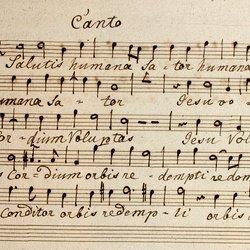 Canto
Salutis humanæ Sa - tor humana
umanæ Sa - tor Jesu vo
Cor - dium Voluptas Jesu Vol
s Cor - dium orbis re - dempti redem
Conditor orbis redemp - ti orbis